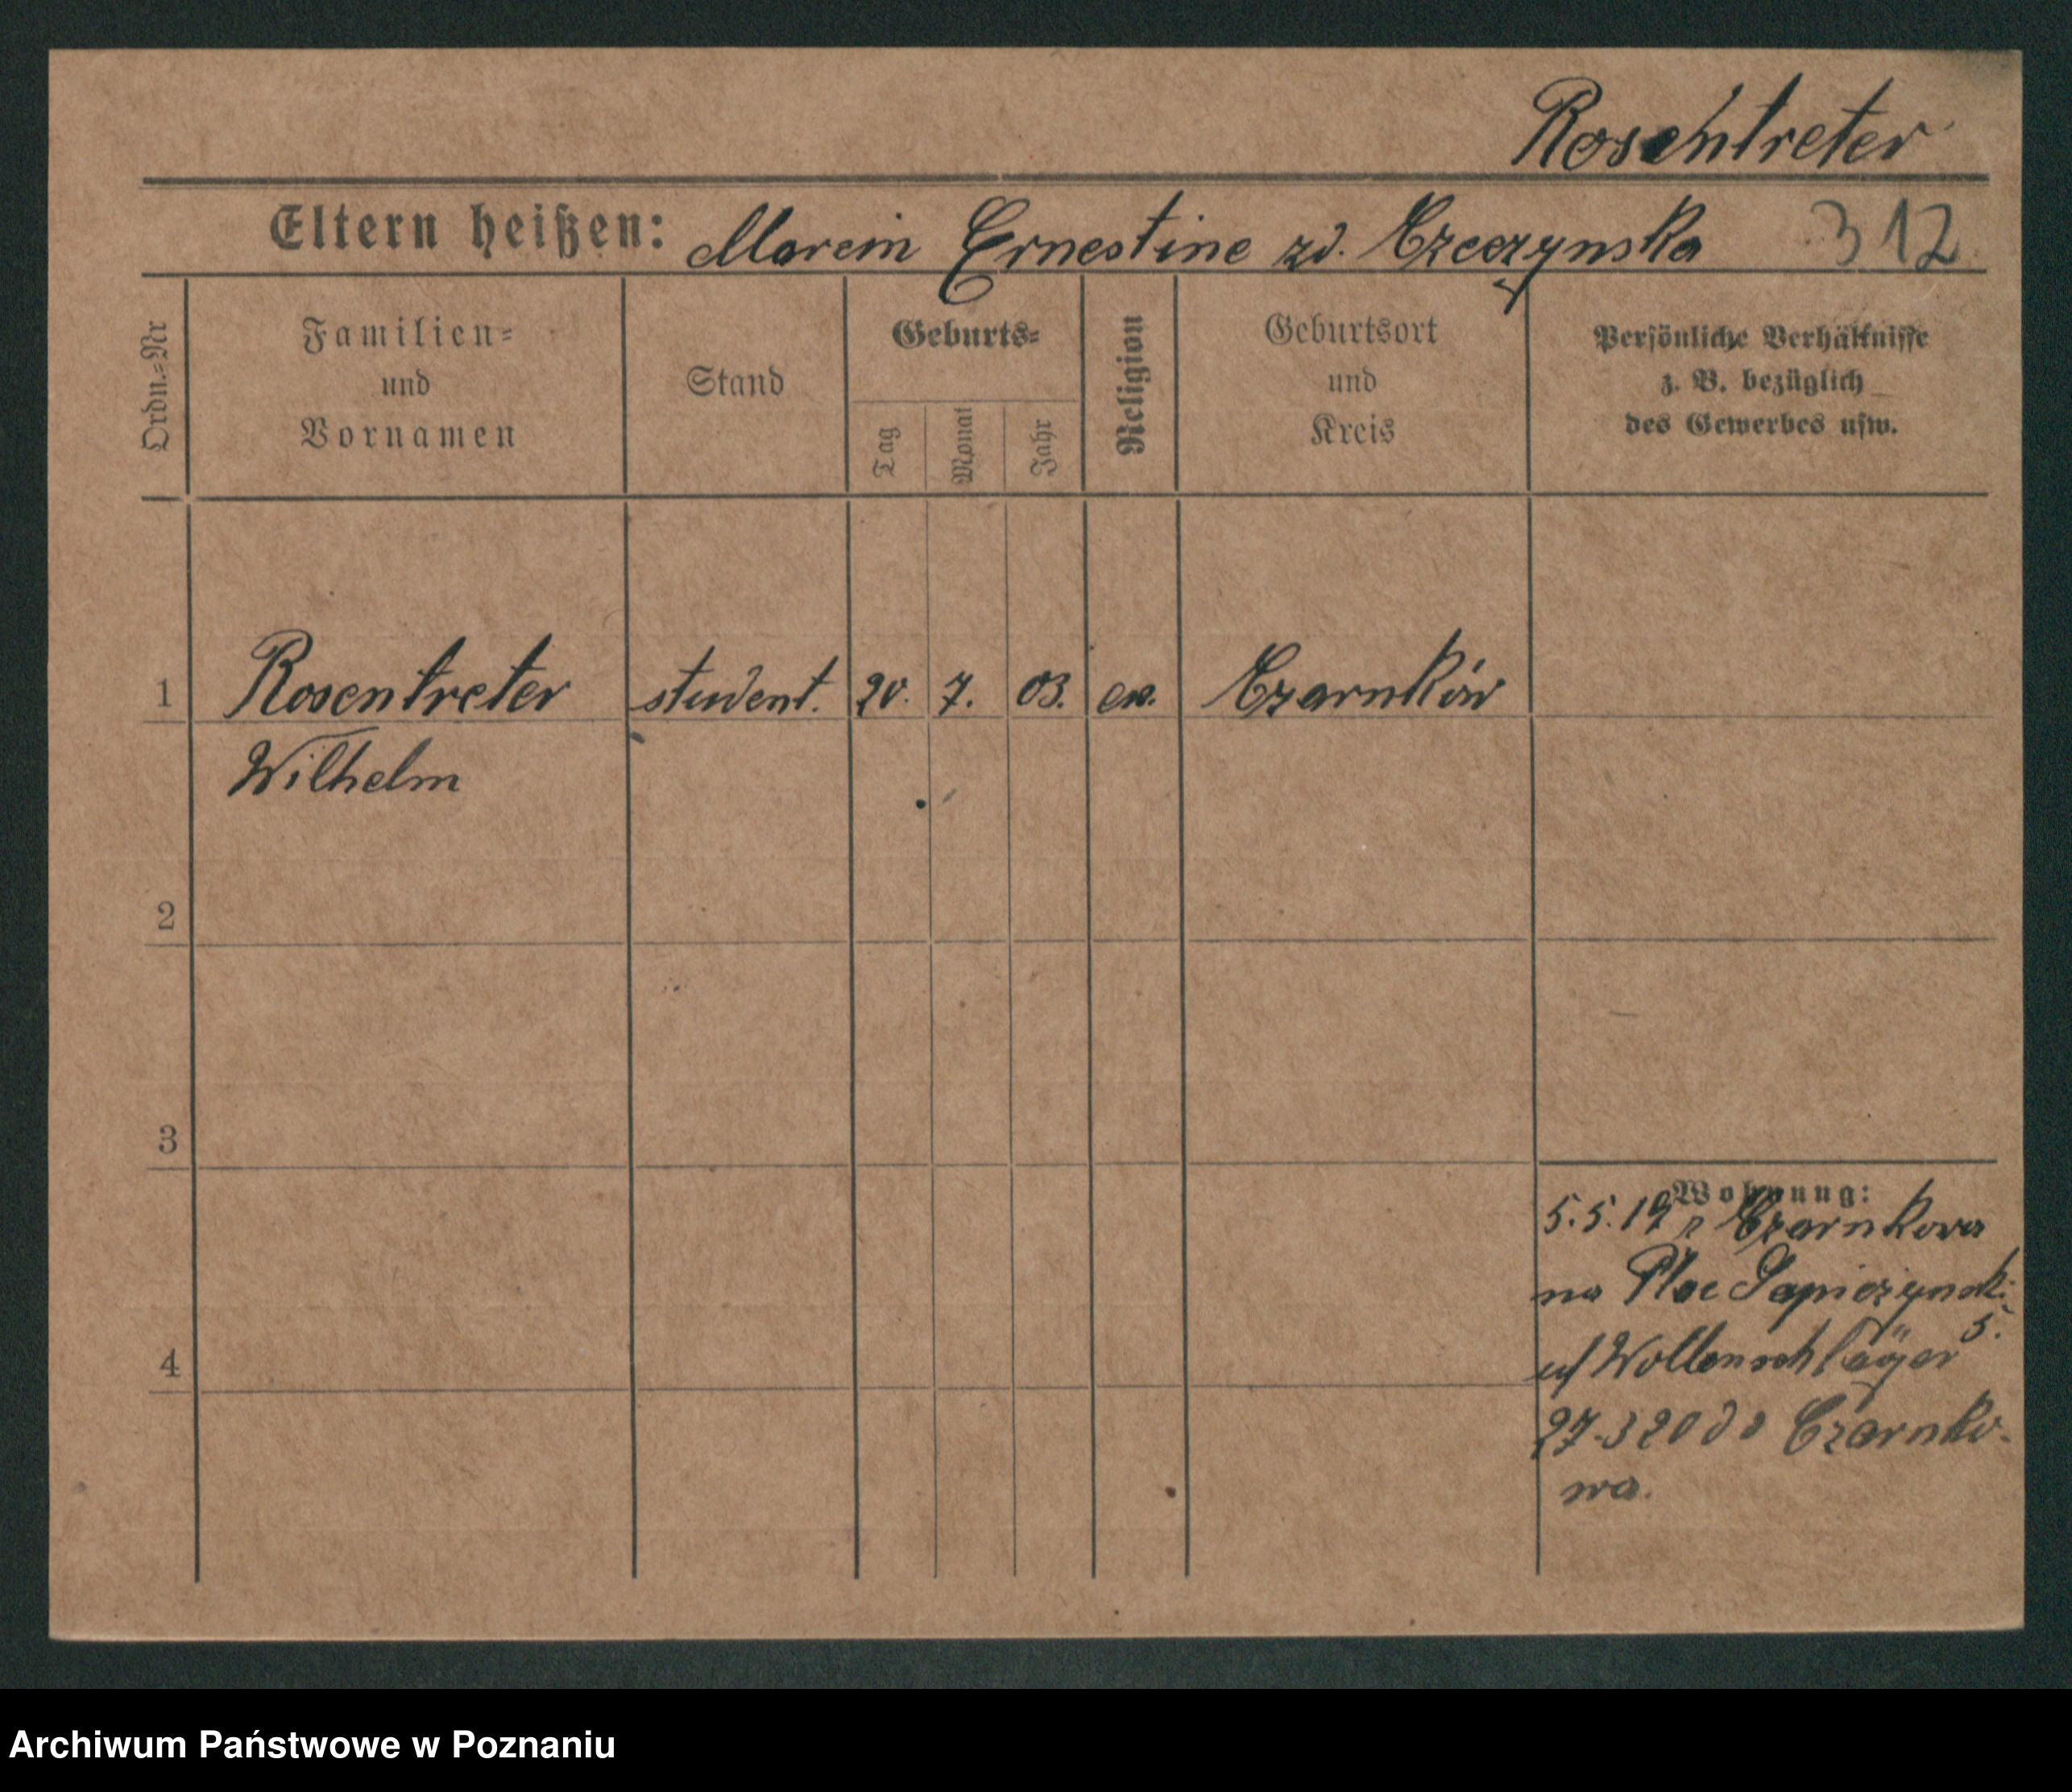 Rosentreter
Eltern heißen: Marcin Ernestine zd. Czeczynska 312
Ordn.=Nr
Familien=
und
Vornamen
Stand
Geburts=
Tag
Monat
Jahr
Religion
Geburtsort
und
Kreis
Persönliche Verhältnisse
z. B. bezüglich
des Gewerbes usw.
1 Rosentreter student. 20. 7. 03. ew. Czarnków
Wilhelm
2
3
4
Wohnung:
5.5.19 z Czarnkowa
na Plac Sapieżynski
5.
Wollenschläger
27.3 20 do Czarnko-
wa.
Archiwum Państwowe w Poznaniu